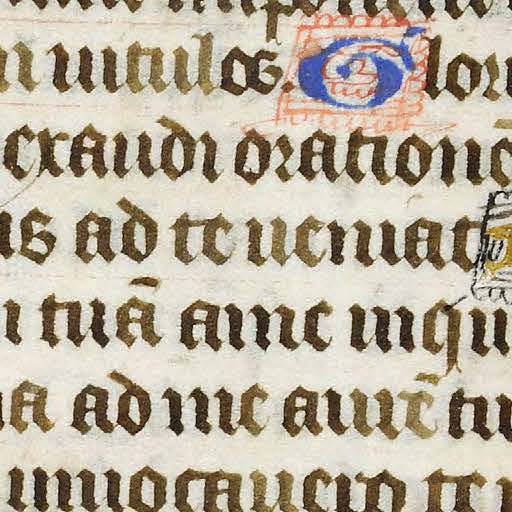 uitulos. Glori
exaudi orationē
us ad te ueniat
i tuā a me inqu
ua ad me aurē tu
inuocauero te